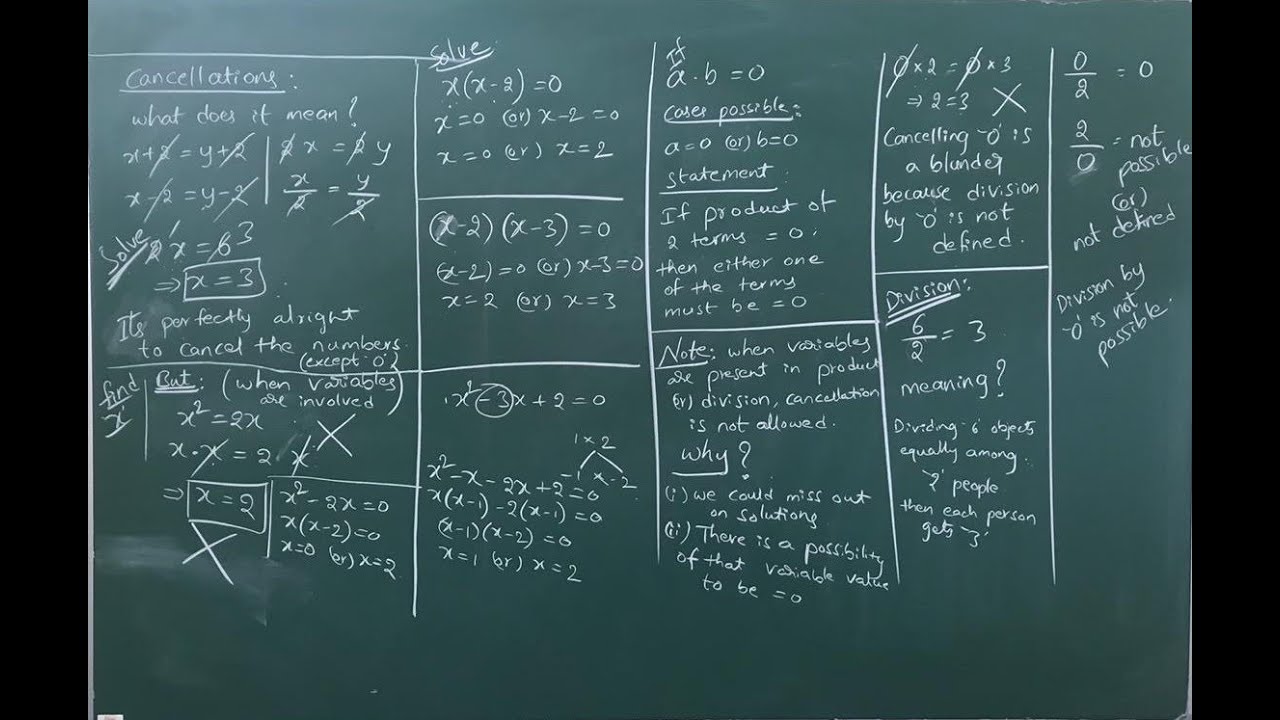 Cancellations:
what does it mean?
x+2 = y+2
x-2 = y-2
2x = 2y
x/2 = y/2
Solve
2x = 6 3
⇒ x = 3
It's perfectly alright
to cancel the numbers.
(except '0')
find 'x'
But: (when variables
are involved)
x² = 2x
x·x = 2x
⇒ x = 2
x² - 2x = 0
x(x-2) = 0
x=0 (or) x=2
Solve
x(x-2) = 0
x=0 (or) x-2 = 0
x=0 (or) x=2
(x-2) (x-3) = 0
(x-2) = 0 (or) x-3 = 0
x=2 (or) x=3
x² - 3x + 2 = 0
1 × 2
-1 × -2
x² - x - 2x + 2 = 0
x(x-1) - 2(x-1) = 0
(x-1)(x-2) = 0
x=1 (or) x=2
If
a·b = 0
Cases possible:
a=0 (or) b=0
statement:
If product of
2 terms = 0.
then either one
of the terms
must be = 0
Note: when variables
are present in product
(or) division, cancellation
is not allowed.
why?
(i) we could miss out
on solutions
(ii) There is a possibility
of that variable value
to be = 0
0 × 2 = 0 × 3
⇒ 2 = 3
Cancelling '0' is
a blunder
because division
by '0' is not
defined.
Division:
6/2 = 3
meaning?
Dividing '6' objects
equally among
'2' people
then each person
gets '3'
0/2 = 0
2/0 = not
possible
(or)
not defined
Division by
'0' is not
possible.